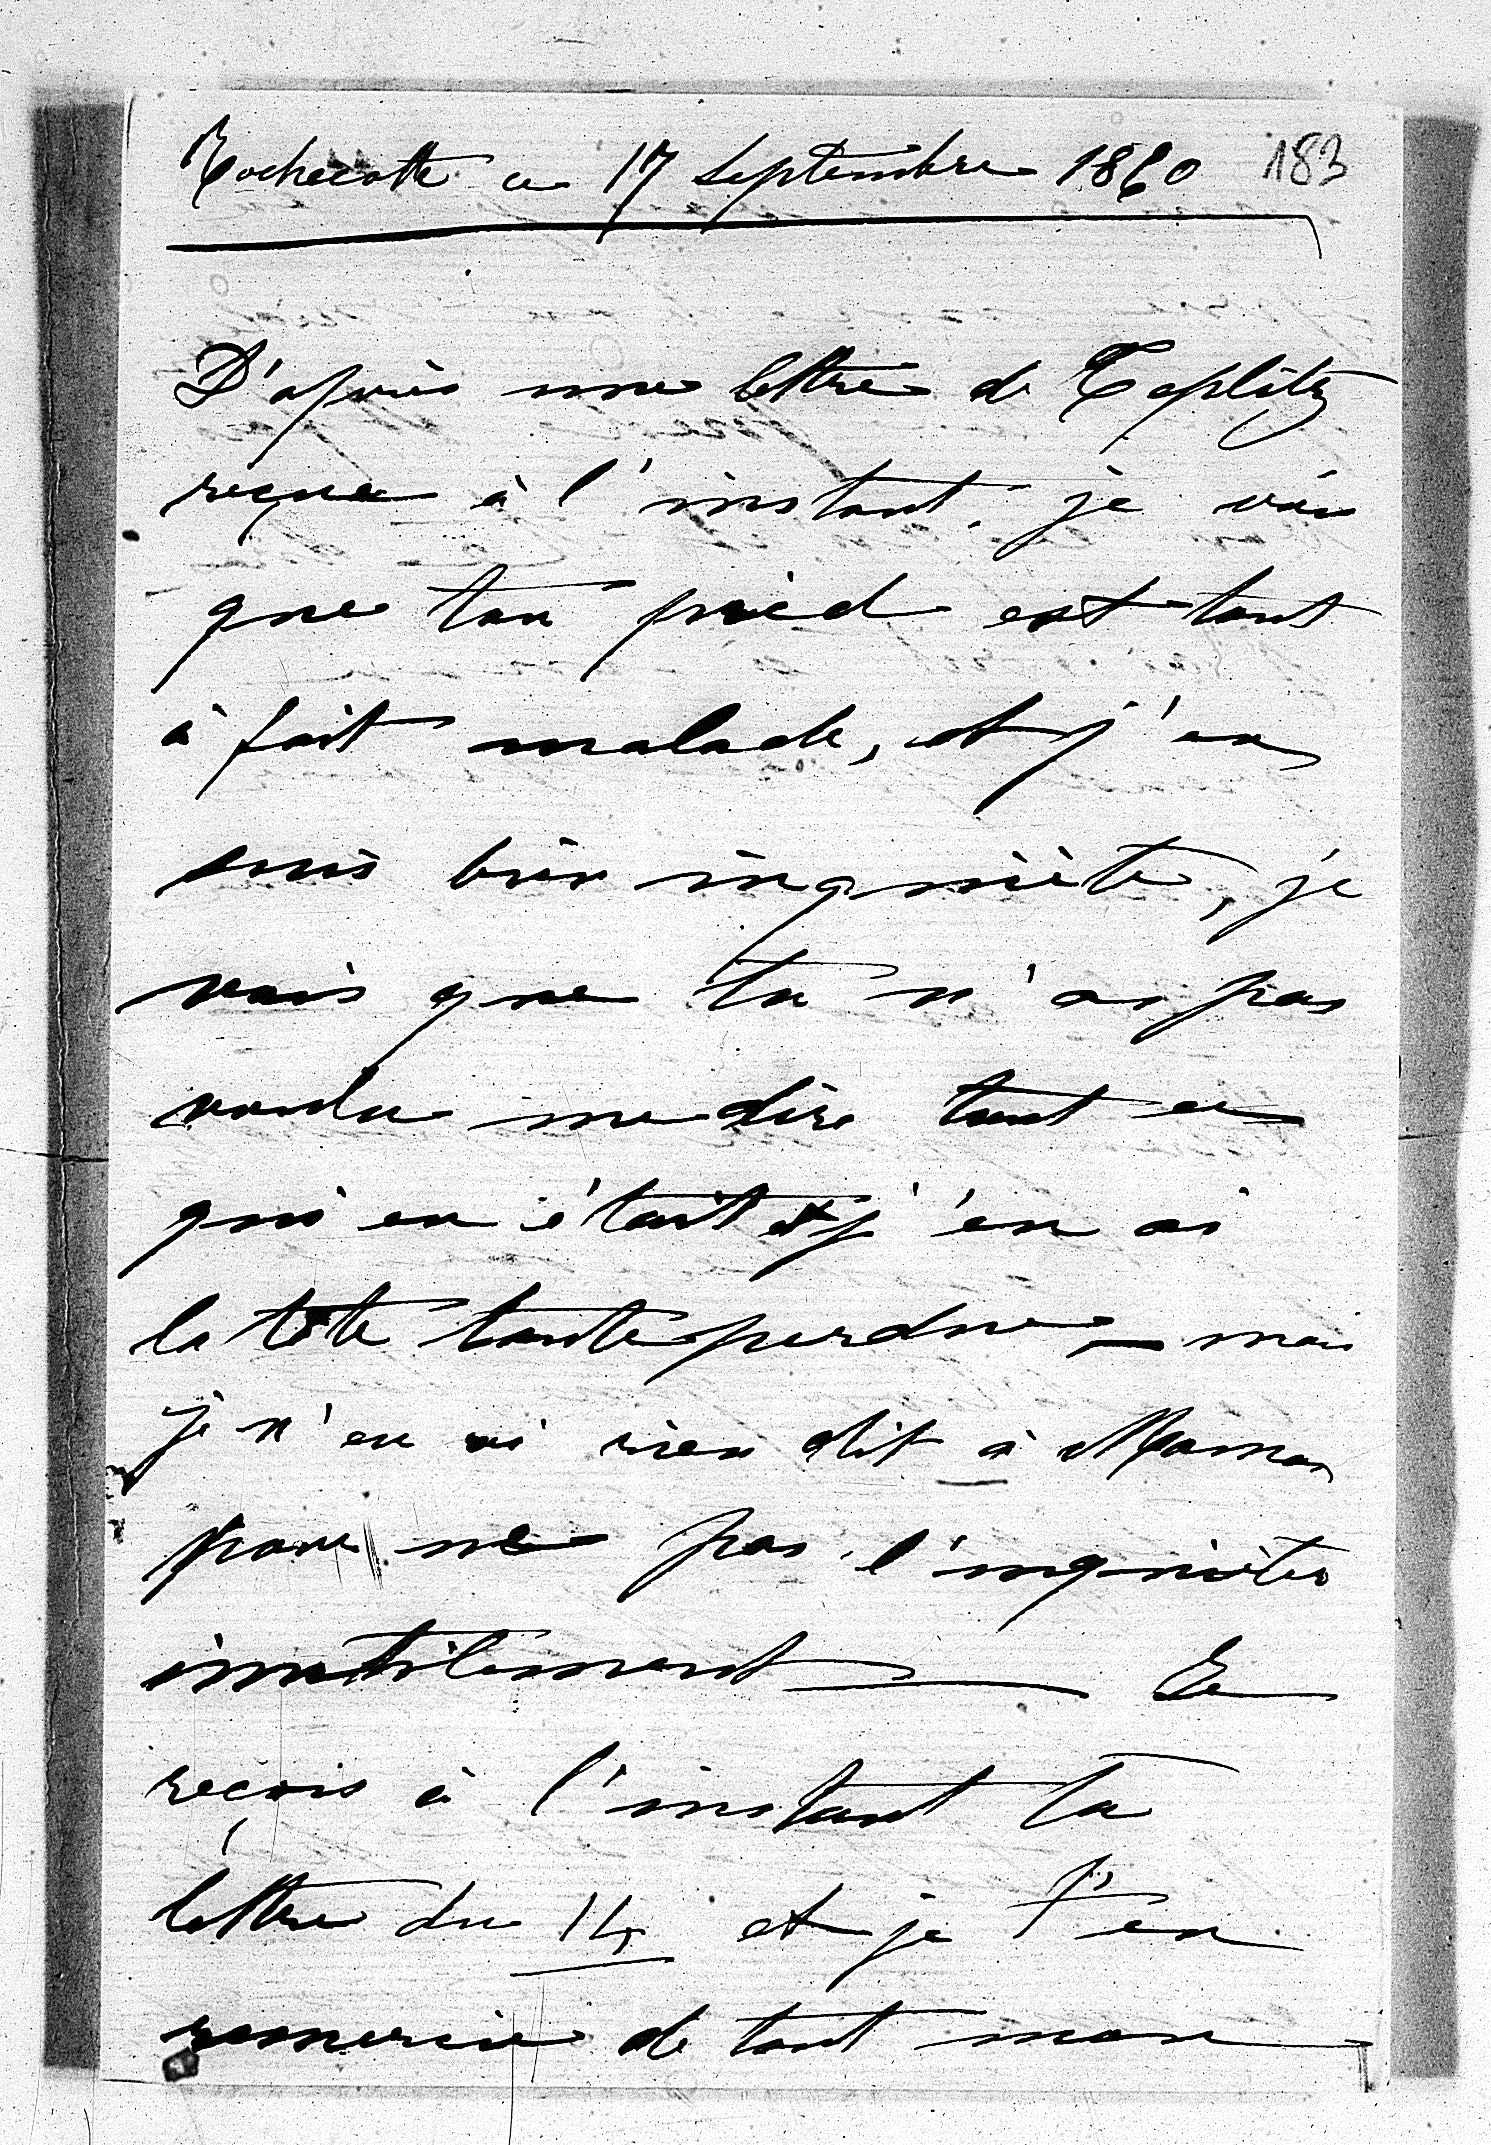 Rochecotte ce 17 Septembre 1860 183
D'après une lettre de Toeplitz
reçue à l'instant, je vois
que ton pied est tout
à fait malade, et j'en
suis bien inquiète, je
vois que tu n'as pas
voulu me dire tout ce
qui en était et j'en ai
la tête toute perdue — mais
je n'en ai rien dit à Maman
pour ne pas l'inquiéter
inutilement — Je
reçois à l'instant ta
lettre du 14 et je t'en
remercie de tout mon